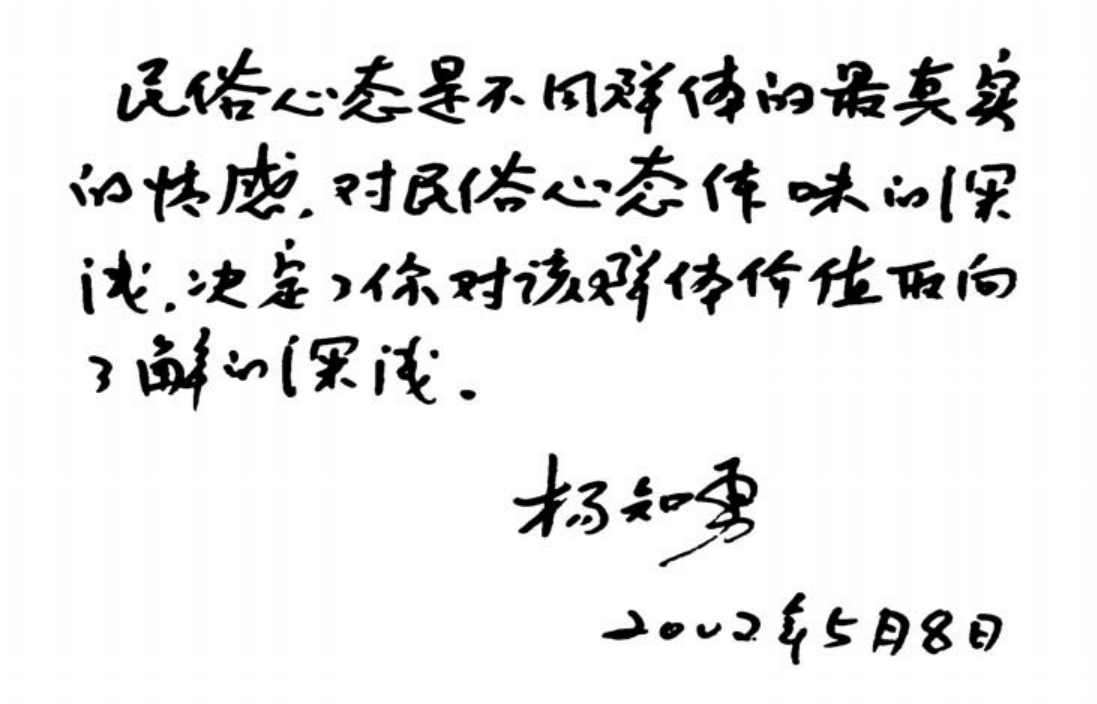 民俗心态是不同群体的最真实
的情感,对民俗心态体味的深
浅,决定了你对该群体价值取向
了解的深浅.
杨知勇
2002年5月8日